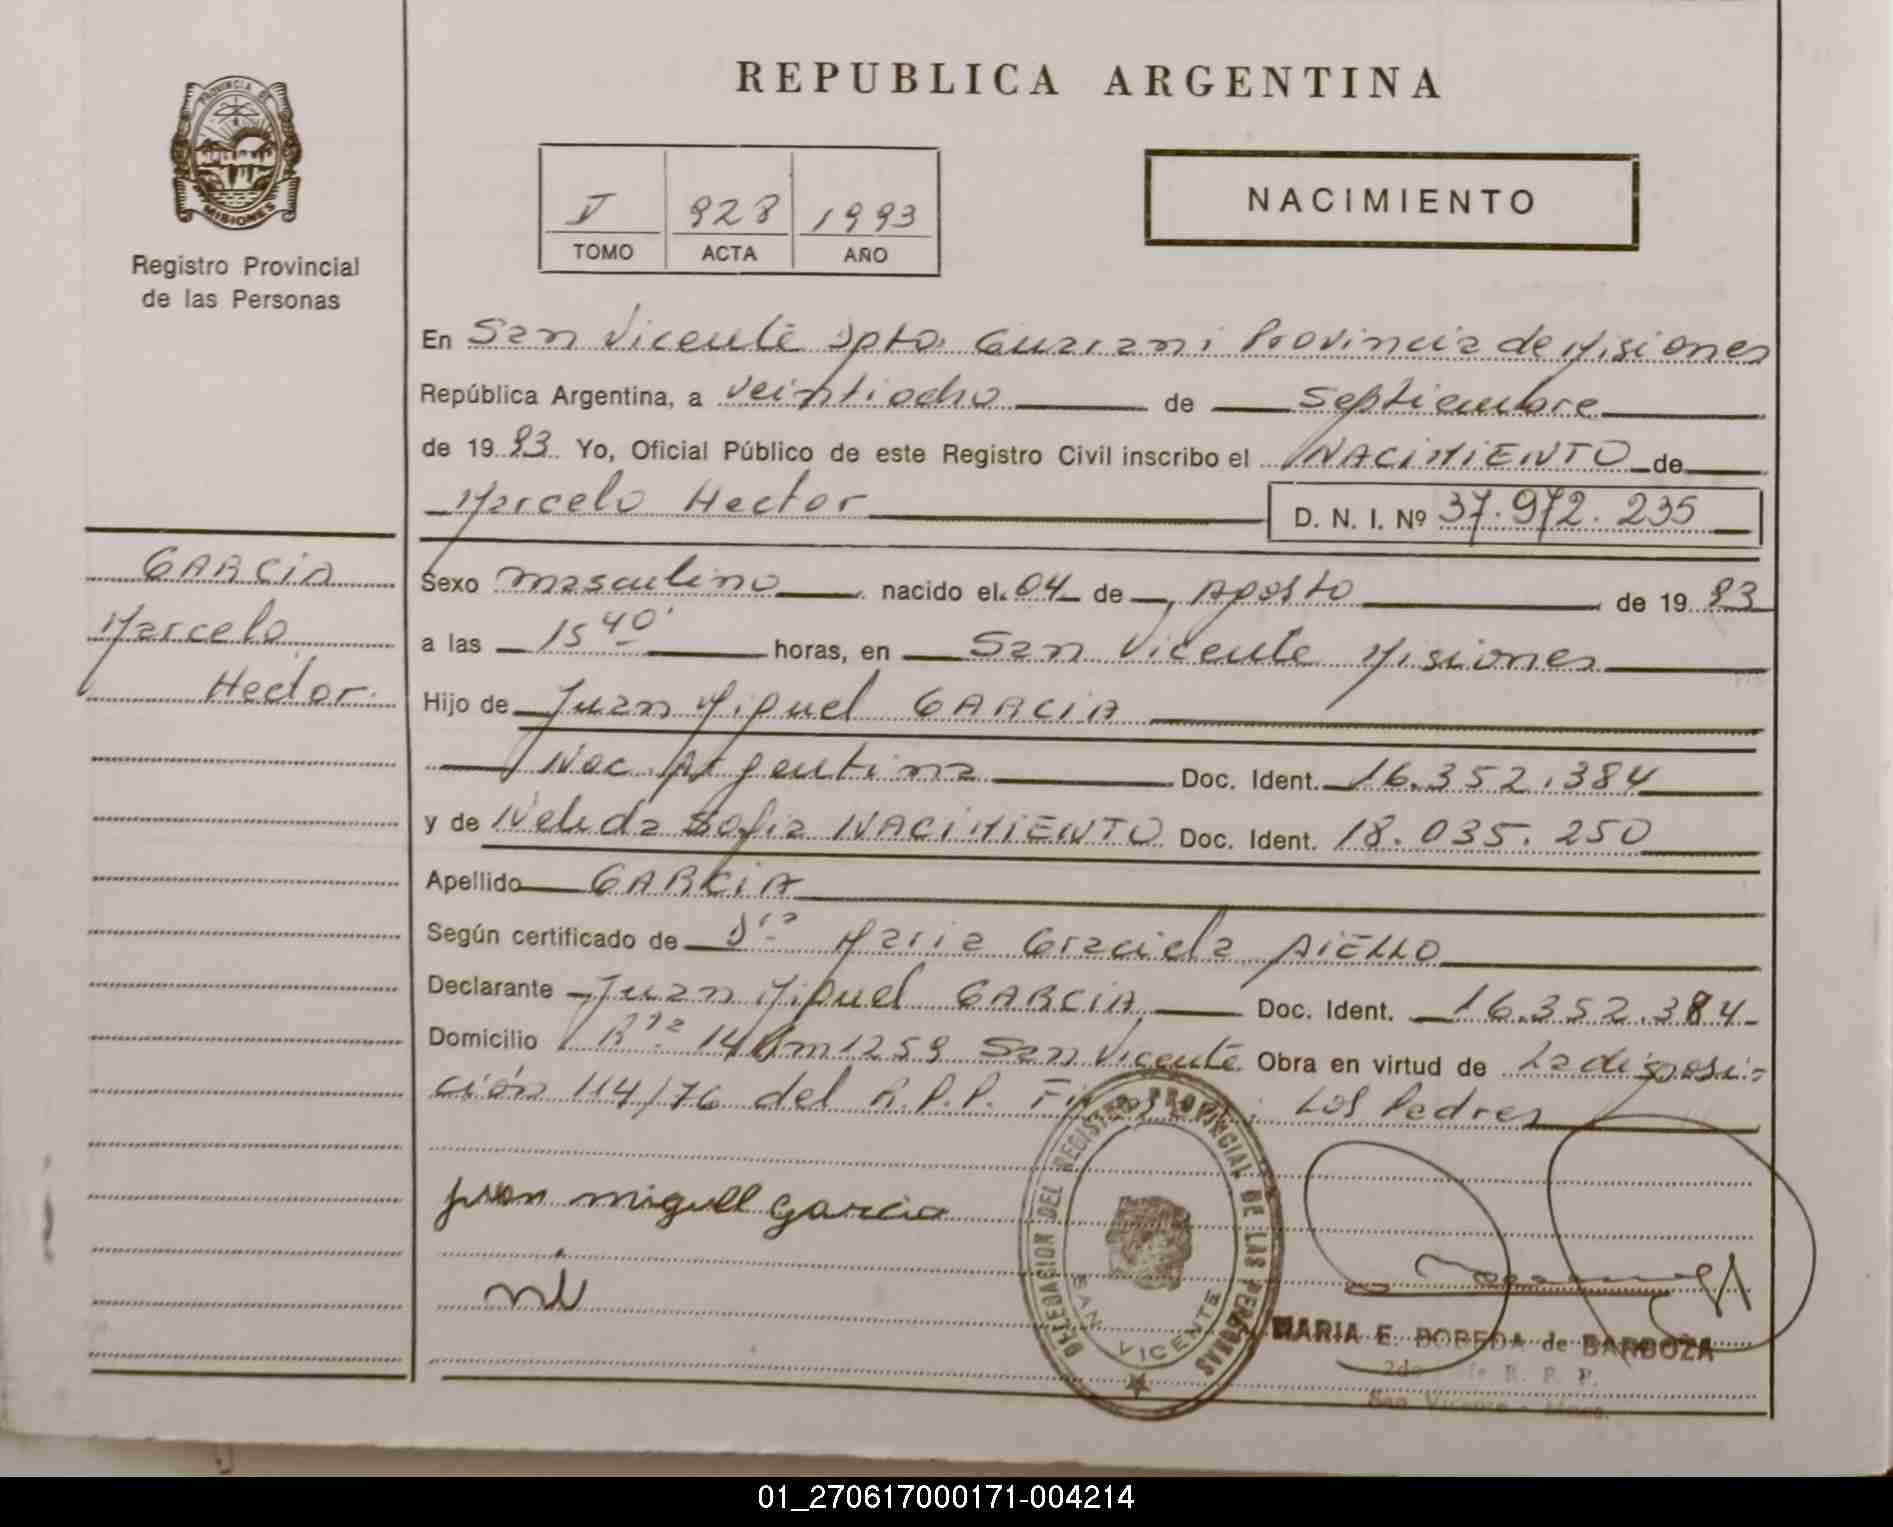 REPUBLICA ARGENTINA
PROVINCIA DE
MISIONES
Registro Provincial
de las Personas
V 928 1993
TOMO ACTA AÑO
NACIMIENTO
En San Vicente Dpto. Guarani Provincia de Misiones
República Argentina, a veintiocho de Septiembre
de 1993 Yo, Oficial Público de este Registro Civil inscribo el NACIMIENTO de
Marcelo Hector D. N. I. Nº 37.972.235
GARCIA
Marcelo
Hector.
Sexo masculino nacido el 04 de Agosto de 1993
a las 15 40' horas, en San Vicente Misiones
Hijo de Juan Miguel GARCIA
Nac. Argentina Doc. Ident. 16.352.384
y de Nelida Sofia NACIMIENTO Doc. Ident. 18.035.250
Apellido GARCIA
Según certificado de Dra Maria Graciela AIELLO
Declarante Juan Miguel GARCIA Doc. Ident. 16.352.384
Domicilio Rta 14 Km 1259 San Vicente Obra en virtud de La disposi-
ción 114/76 del R.P.P. Los Padres
juan miguel garcia
DELEGACION DEL REGISTRO PROVINCIAL DE LAS PERSONAS
SAN VICENTE
MARIA E. BOBEDA de BARBOZA
2do R. P. P.
San Vicente - Mnes.
01_270617000171-004214